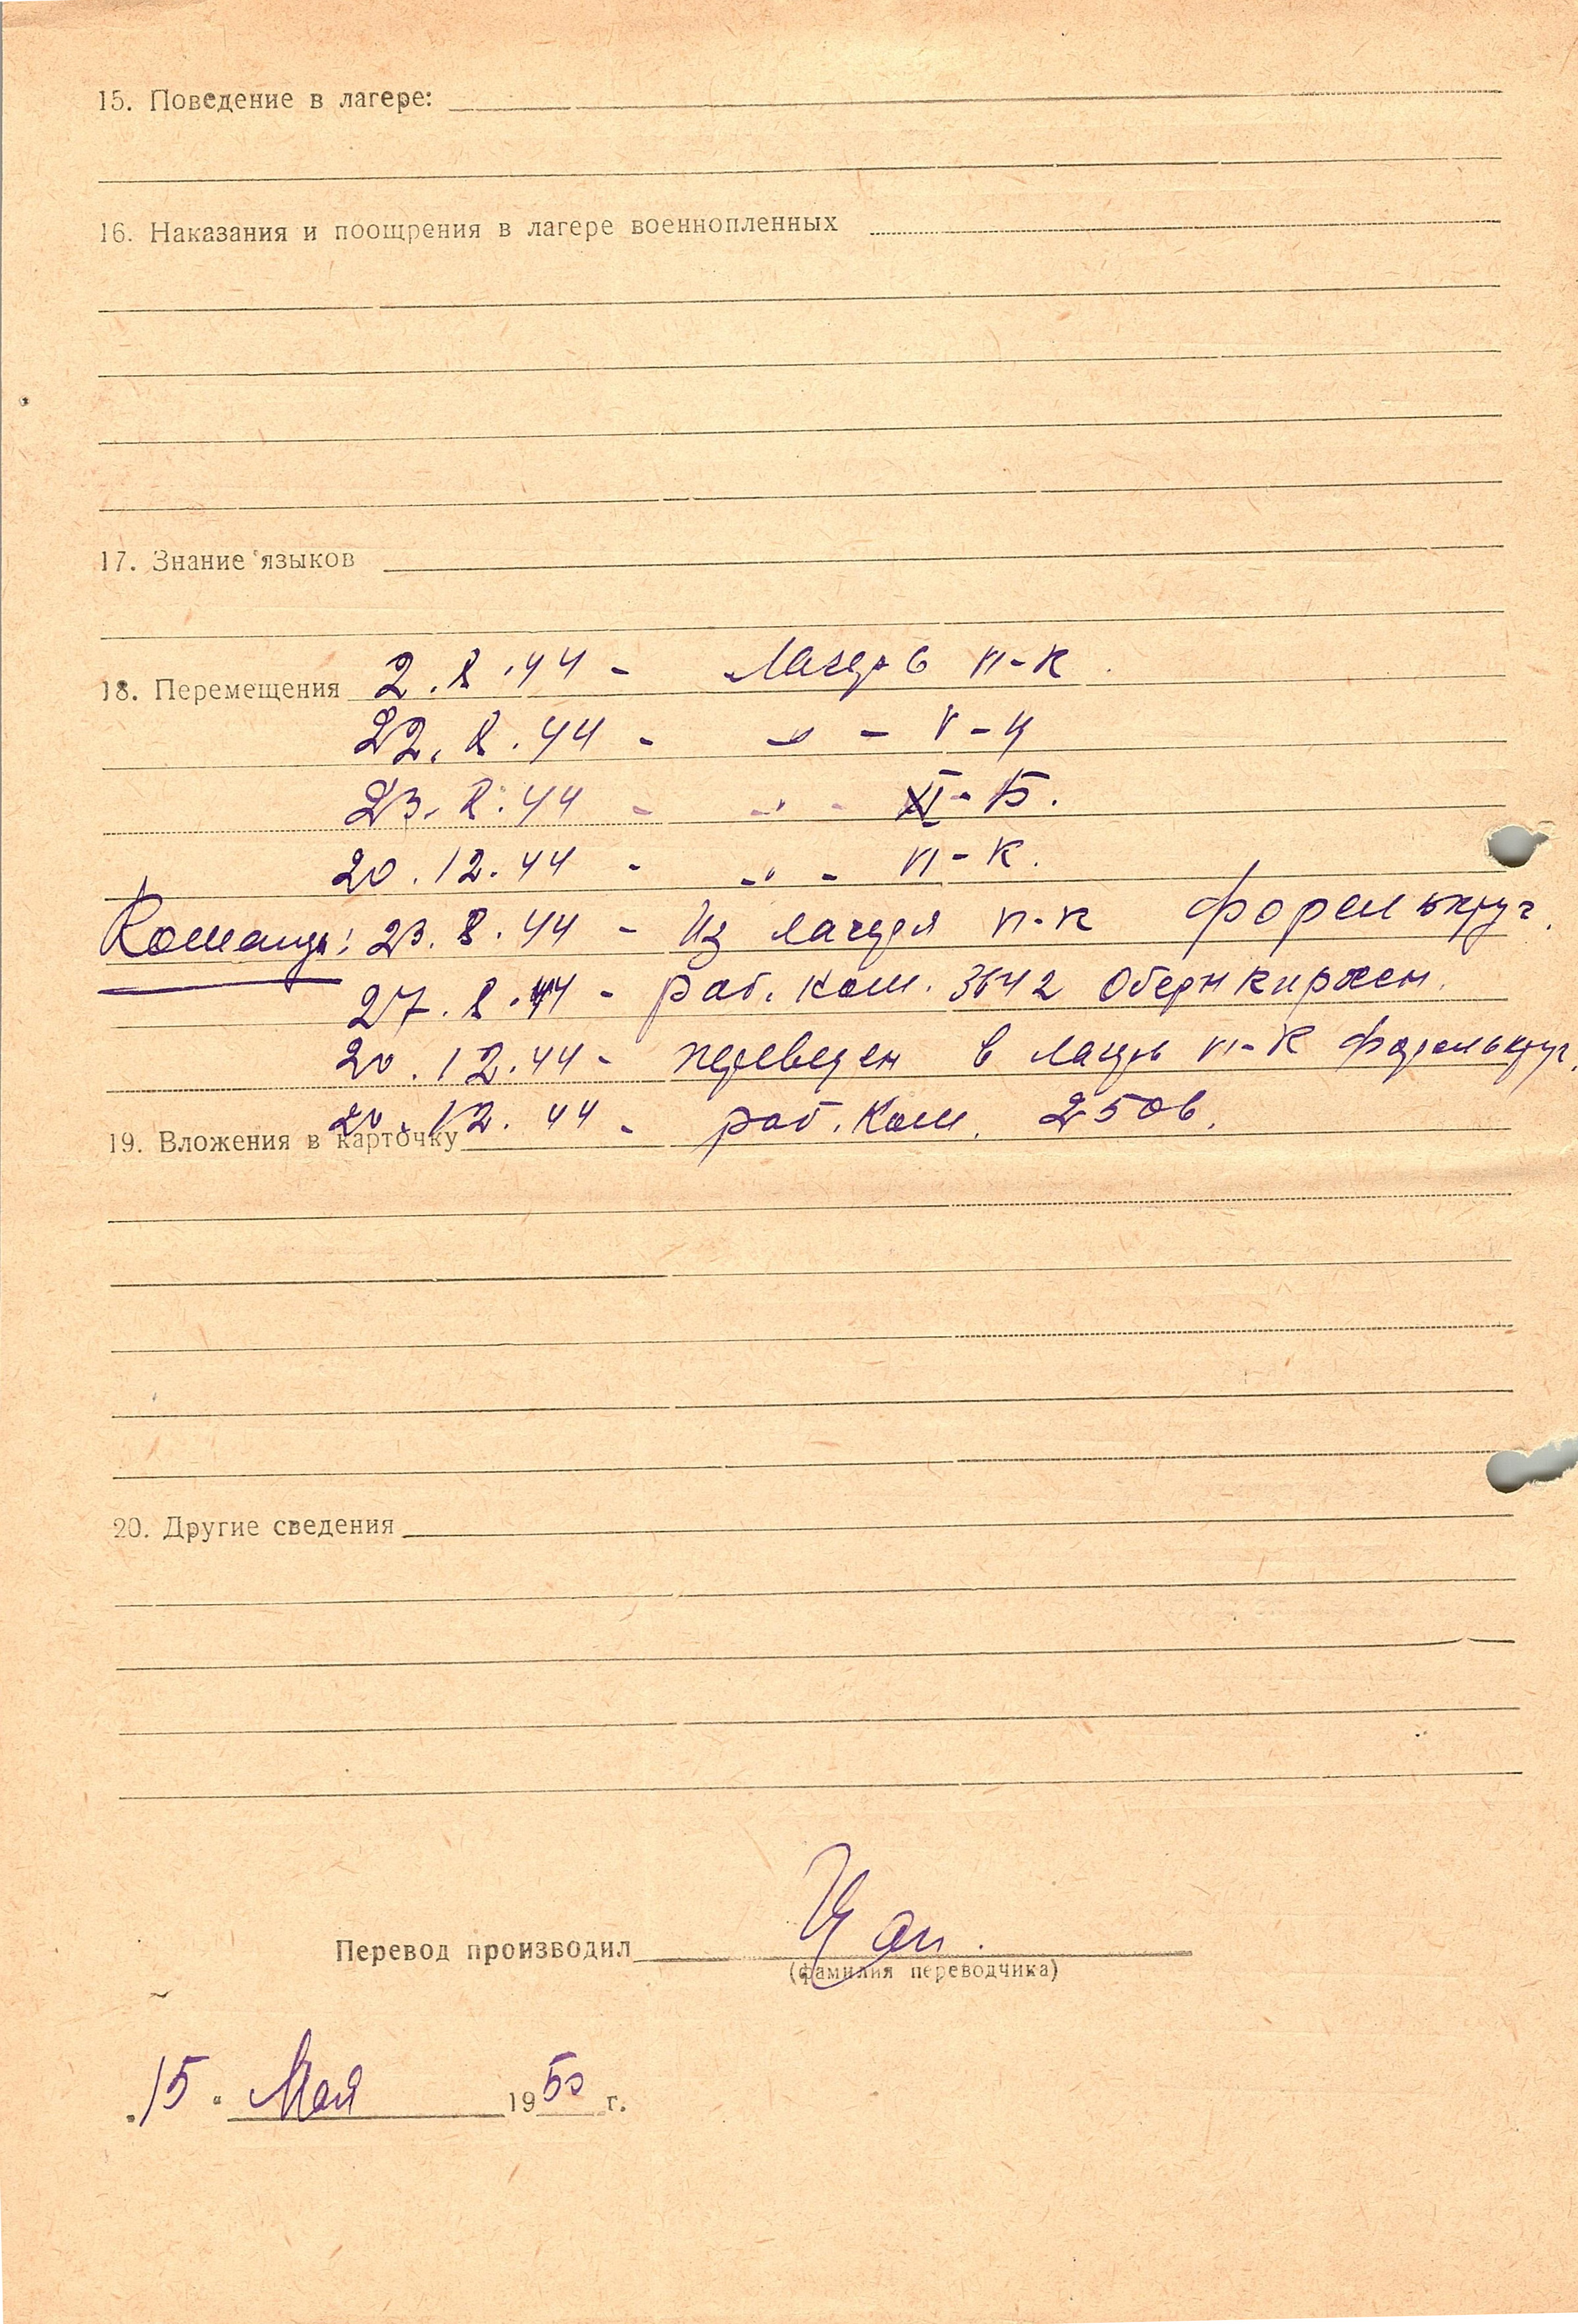 15. Поведение в лагере:
16. Наказания и поощрения в лагере военнопленных
17. Знание языков
18. Перемещения 2.8.44 - Лагерь VI-К.
22.8.44 - " - V-Ц
23.8.44 - " - XI-Б.
20.12.44 - " - VI-К.
Команды: 23.8.44 - Из лагеря VI-К Форелькруг.
27.8.44 - раб. ком. 3642 Обернкирхен.
20.12.44 - переведен в лагерь VI-К Форелькруг.
20.12.44 - раб. ком. 2506.
19. Вложения в карточку
20. Другие сведения
Перевод производил
(фамилия переводчика)
"15" Мая 1950 г.